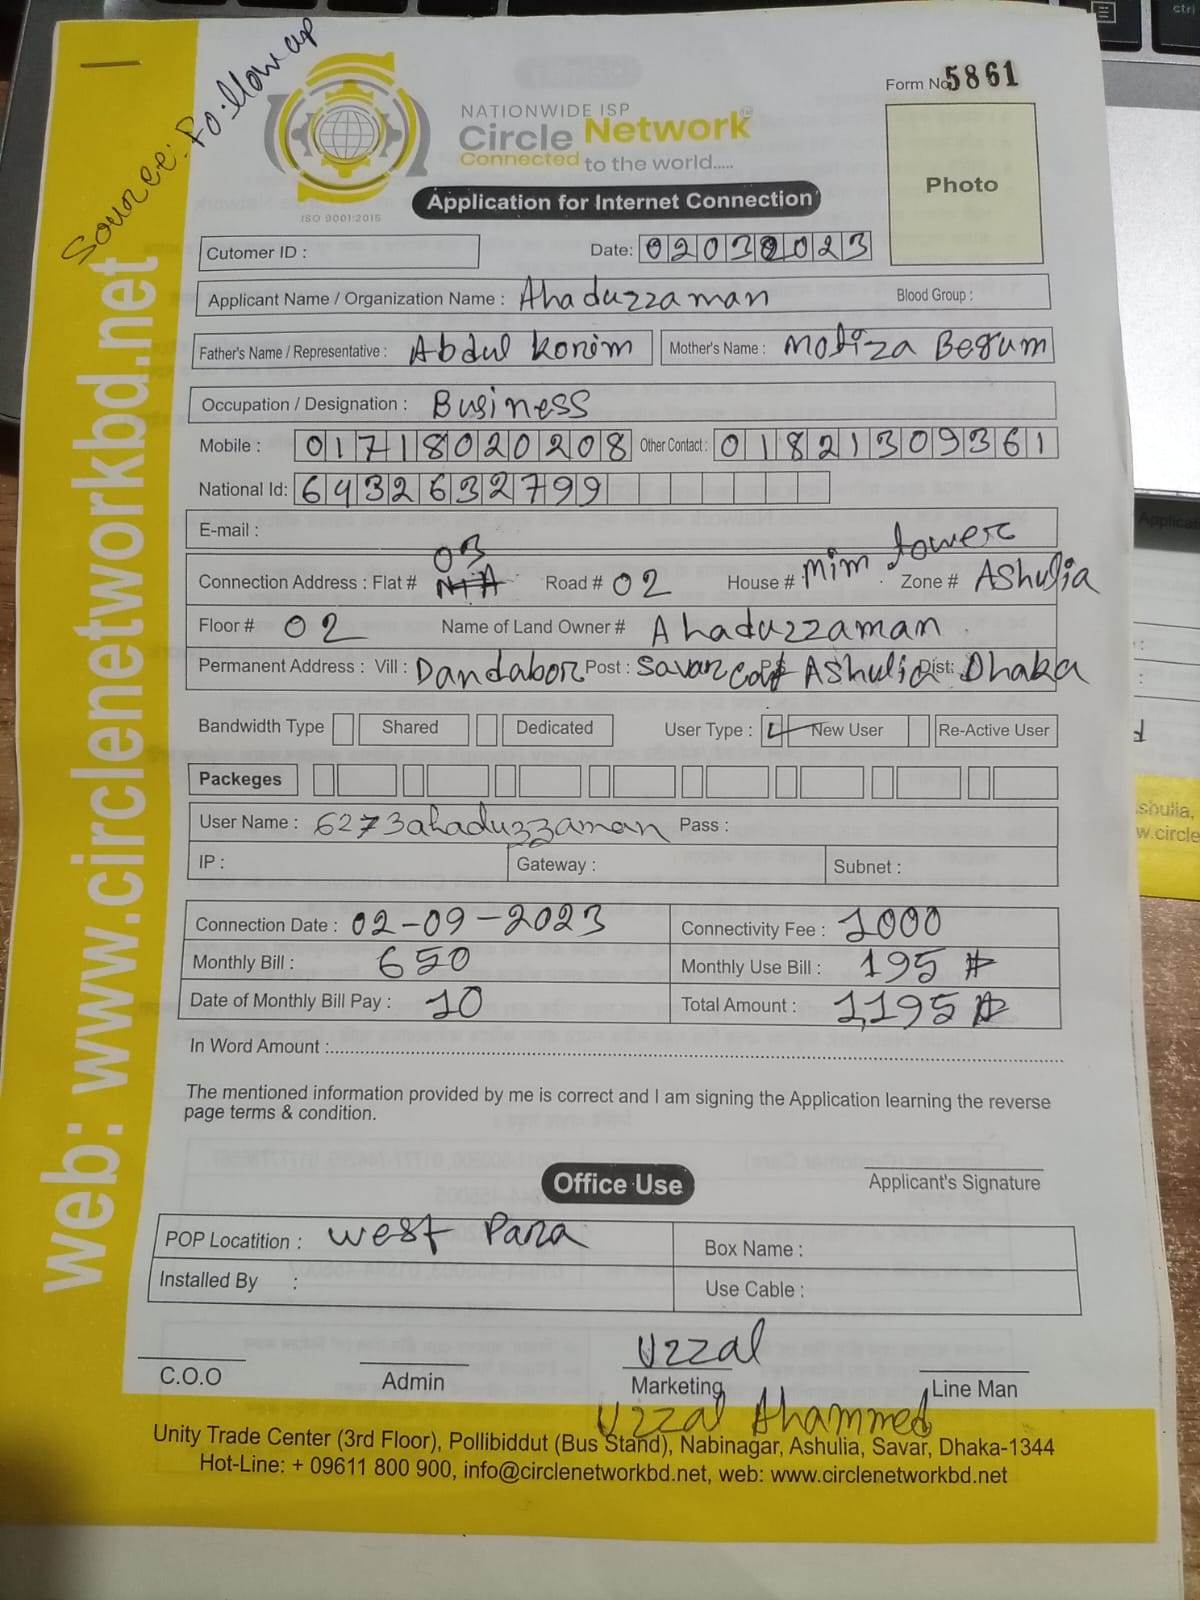 Source: Follow up
Form No 5861
NATIONWIDE ISP
Circle Network
Connected to the world.....
ISO 9001:2015
Photo
Application for Internet Connection
Cutomer ID :
Date: 02032023
Applicant Name / Organization Name : Ahaduzzaman Blood Group :
Father's Name / Representative : Abdul Korim Mother's Name : Mofiza Begum
Occupation / Designation : Business
Mobile : 01718020208 Other Contact : 01821309361
National Id: 6432632799
E-mail :
Connection Address : Flat # 03 Road # 02 House # Mim tower Zone # AShulia
Floor # 02 Name of Land Owner # Ahaduzzaman
Permanent Address : Vill : Dandabor Post : Savar Cant AShulia Dist: Dhaka
Bandwidth Type Shared Dedicated User Type : New User Re-Active User
Packeges
User Name : 6273ahaduzzaman Pass :
IP : Gateway : Subnet :
Connection Date : 02-09-2023 Connectivity Fee : 1000
Monthly Bill : 650 Monthly Use Bill : 195
Date of Monthly Bill Pay : 10 Total Amount : 1,195
In Word Amount :
The mentioned information provided by me is correct and I am signing the Application learning the reverse
page terms & condition.
Office Use
Applicant's Signature
POP Locatition : West Para Box Name :
Installed By : Use Cable :
Uzzal
C.O.O Admin Marketing Line Man
Uzzal Ahammed
Unity Trade Center (3rd Floor), Pollibiddut (Bus Stand), Nabinagar, Ashulia, Savar, Dhaka-1344
Hot-Line: + 09611 800 900, info@circlenetworkbd.net, web: www.circlenetworkbd.net
web: www.circlenetworkbd.net